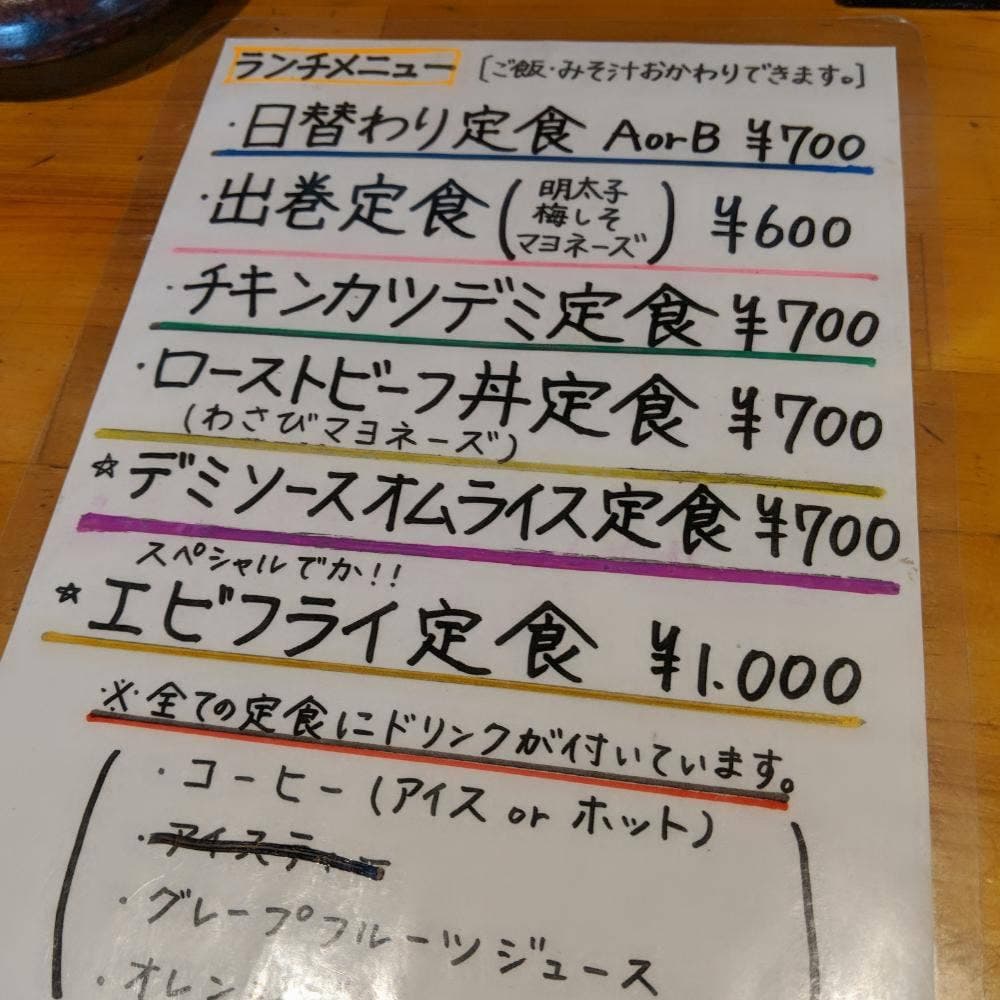 ランチメニュー [ご飯・みそ汁おかわりできます。]
・日替わり定食 AorB ¥700
・出巻定食 (明太子
梅しそ
マヨネーズ) ¥600
・チキンカツデミ定食 ¥700
・ローストビーフ丼定食 ¥700
(わさびマヨネーズ)
☆デミソースオムライス定食 ¥700
スペシャルでか!!
☆エビフライ定食 ¥1.000
※全ての定食にドリンクが付いています。
・コーヒー(アイス or ホット)
・グレープフルーツジュース
・オレン